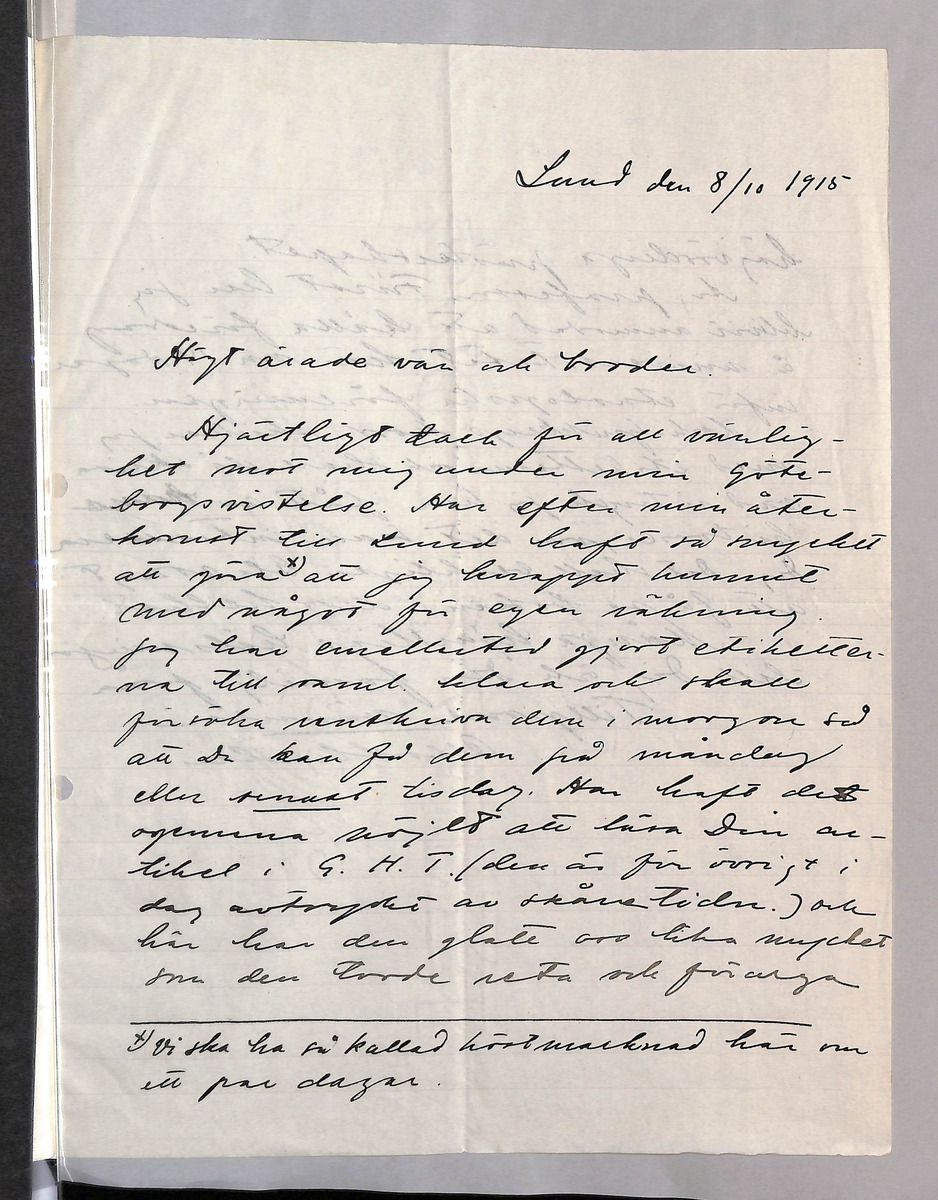 Lund den 8/10 1915
Högt ärade vän och broder.
Hjärtligt tack för all vänlig-
het mot mig under min Göte-
borgsvistelse. Har efter min åter-
komst till Lund haft så mycket
att göra x) att jag knappt hunnit
med något för egen räkning.
Jag har emellertid gjort etiketter-
na till saml. klara och skall
försöka renskriva dem i morgon så
att Du kan få dem på måndag
eller senast tisdag. Har haft det
ogemena nöjet att läsa Din ar-
tikel i G. H. T. (den är för övrigt i
dag avtryckt av skånetidn.) och
här har den glatt oss lika mycket
som den torde reta och förarga
x) Vi ska ha så kallad höstmarknad här om
ett par dagar.